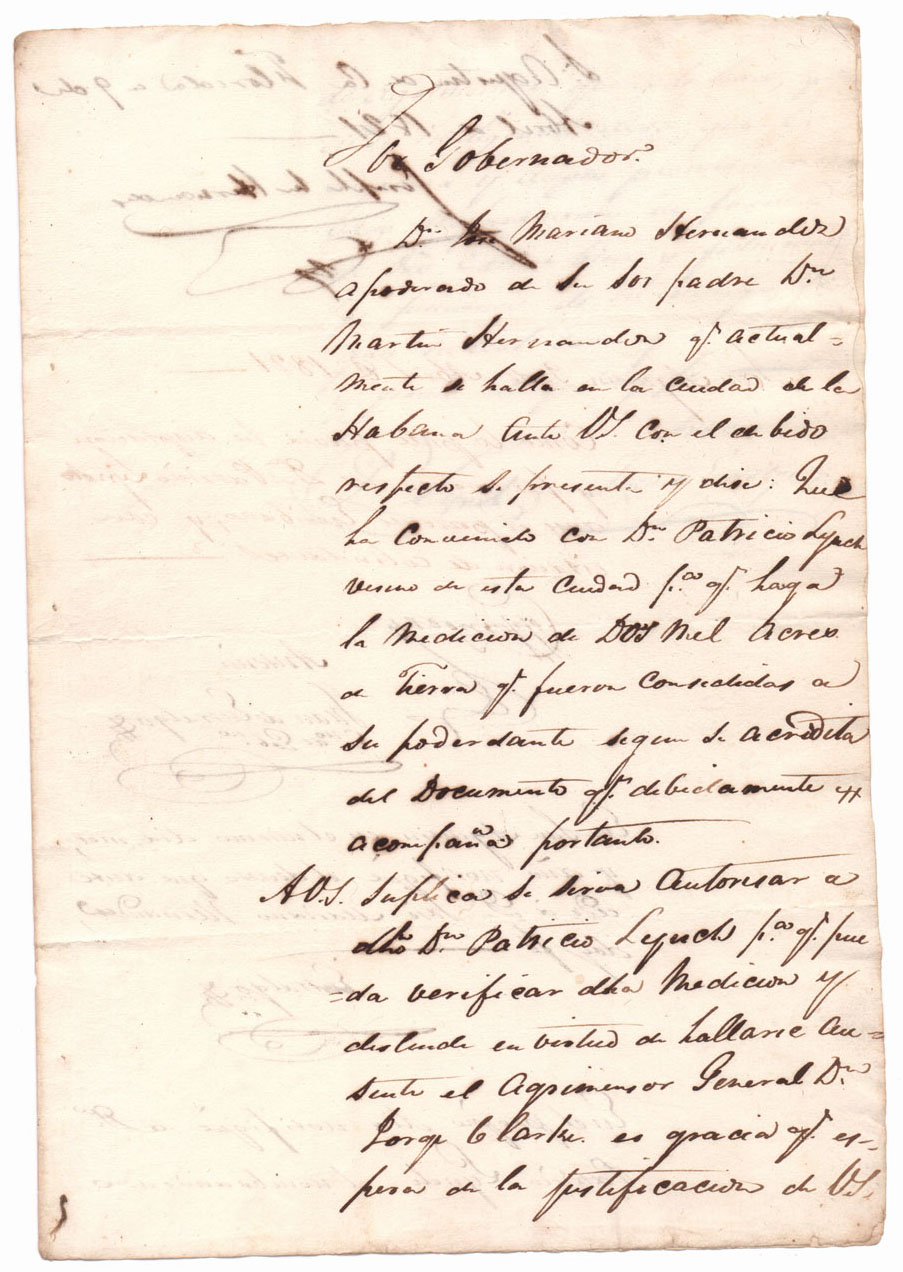 Sor Gobernador.
Dn Jose Mariano Hernandez
apoderado de su Sor padre Dn
Martin Hernandez qe. actual=
mente se halla en la ciudad de la
Habana ante VS. con el debido
respecto se presenta y dise: Que
ha convenido con Dn. Patricio Lynch
vesino de esta Ciudad pa. qe. haga
la Medicion de Dos Mil Acres
de Tierra qe. fueron consedidas a
su poderdante segun se acredita
del Documento qe. debidamente
acompaña portanto.
A V.S. Suplica se sirva Autorisar a
dho Dn Patricio Lynch pa. qe. pue
=da verificar dha Medicion y
deslinde en virtud de hallarse Au=
sente el Agrimensor General Dn
Jorge Clarke. es gracia qe. es-
pera de la justificacion de VS.